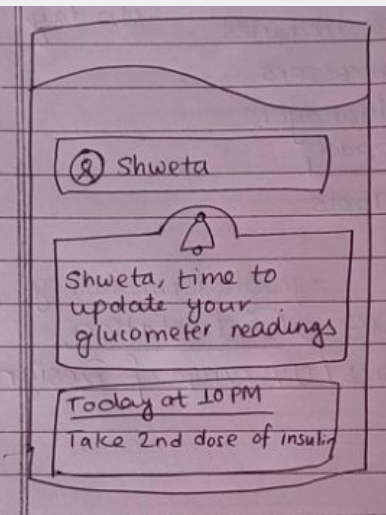 Shweta
Shweta, time to
update your
glucometer readings
Today at 10 PM
Take 2nd dose of insulin